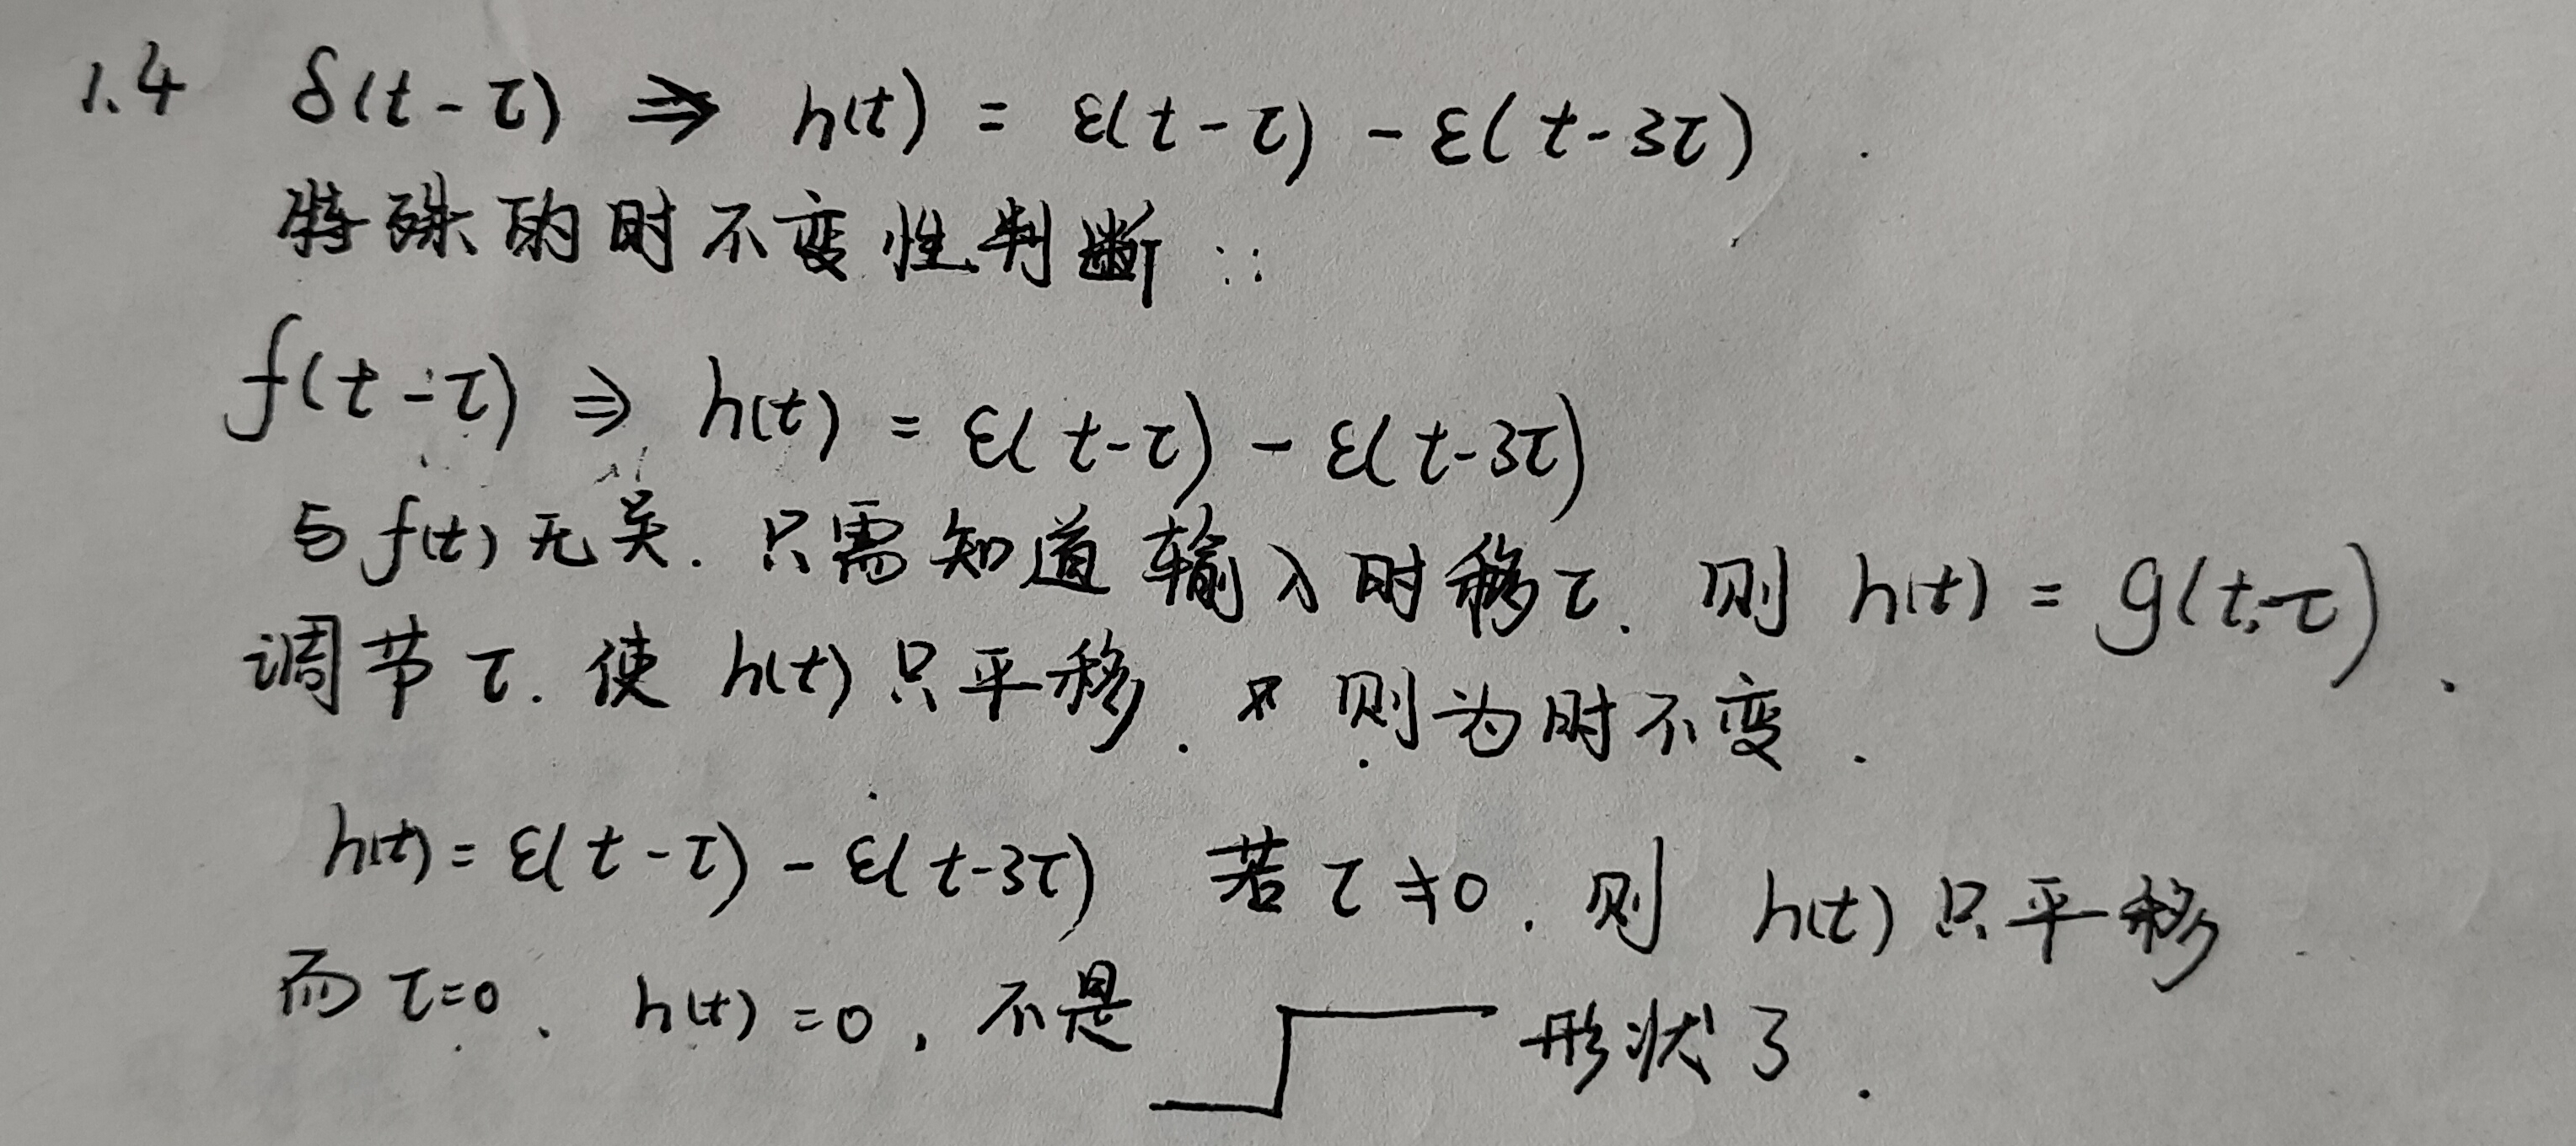 1.4 δ(t-τ) ⇒ h(t) = ε(t-τ) - ε(t-3τ) .
特殊的时不变性判断 ::
f(t-τ) ⇒ h(t) = ε(t-τ) - ε(t-3τ)
与f(t)无关. 只需知道输入时移τ. 则 h(t) = g(t,τ) .
调节τ. 使 h(t)只平移. 则为时不变.
h(t) = ε(t-τ) - ε(t-3τ) 若τ≠0. 则 h(t)只平移
而τ=0. h(t)=0, 不是 形状了.